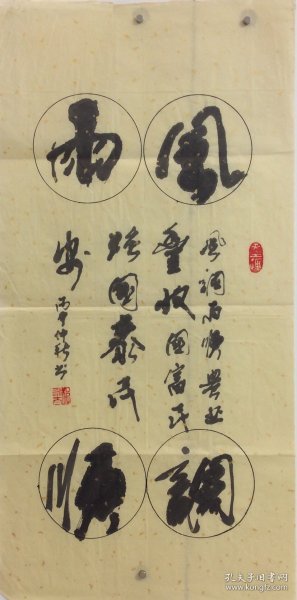 風調
雨順
風調雨順農業
豐收國富民
強國泰民
安
丙申仲秋書
孔夫子旧书网
book.kongfz.com